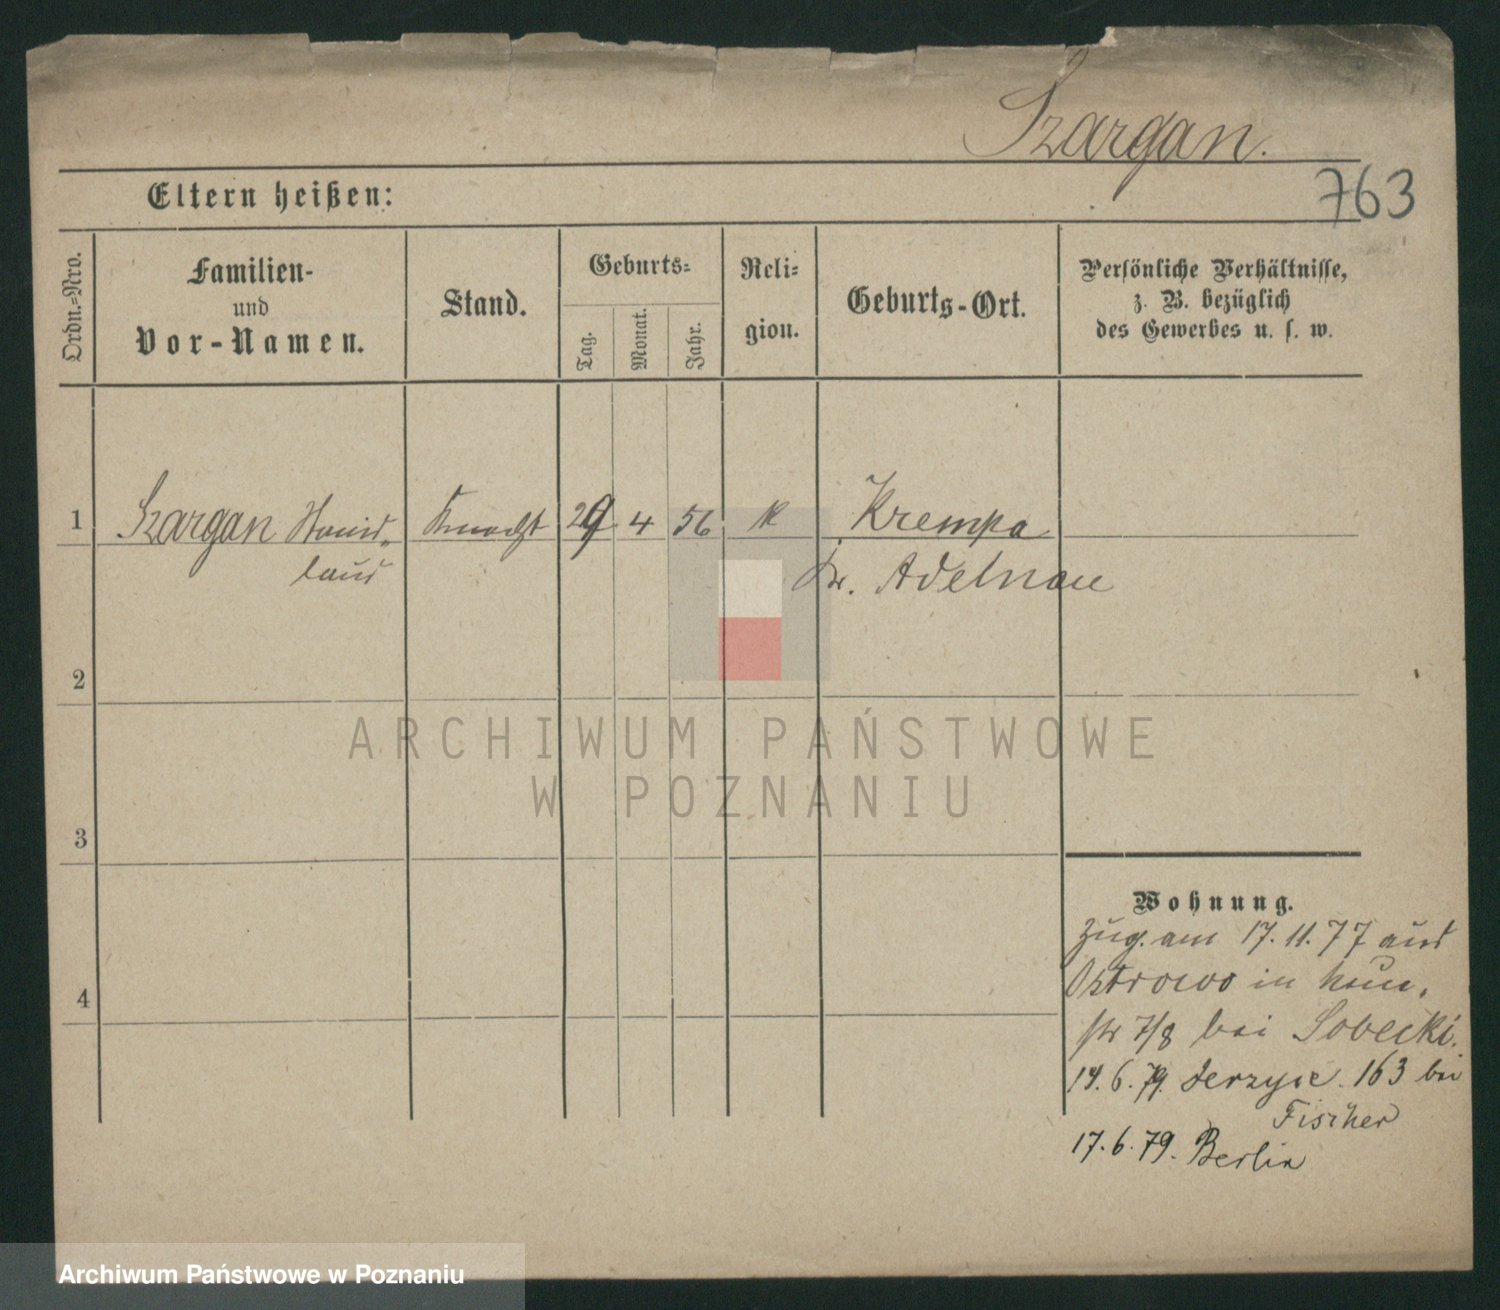 Szargan.
763
Eltern heißen:
Ordn.=Nro.
Familien-
und
Vor-Namen.
Stand.
Geburts=
Tag.
Monat.
Jahr.
Reli=
gion.
Geburts-Ort.
Persönliche Verhältnisse,
z. B. bezüglich
des Gewerbes u. s. w.
1 Szargan Stanis- Knecht 29 4 56 k Krempa
laus Kr. Adelnau
2
3
4
Wohnung.
Zug. am 17. 11. 77 aus
Ostrowo in
str 7/8 bei Sobecki.
14. 6. 79. Jerzyce. 163 bei
Fischer
17. 6. 79. Berlin
ARCHIWUM PAŃSTWOWE
W POZNANIU
Archiwum Państwowe w Poznaniu